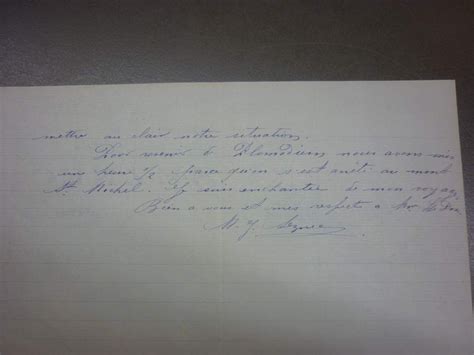 mettre au clair notre situation.
Pour revenir à nous avons mis
un heure ½ parce qu'on s'est arrêté au mont
St. Michel. Je suis enchantée de mon voyage
Bien à vous et mes respects à
M. J.